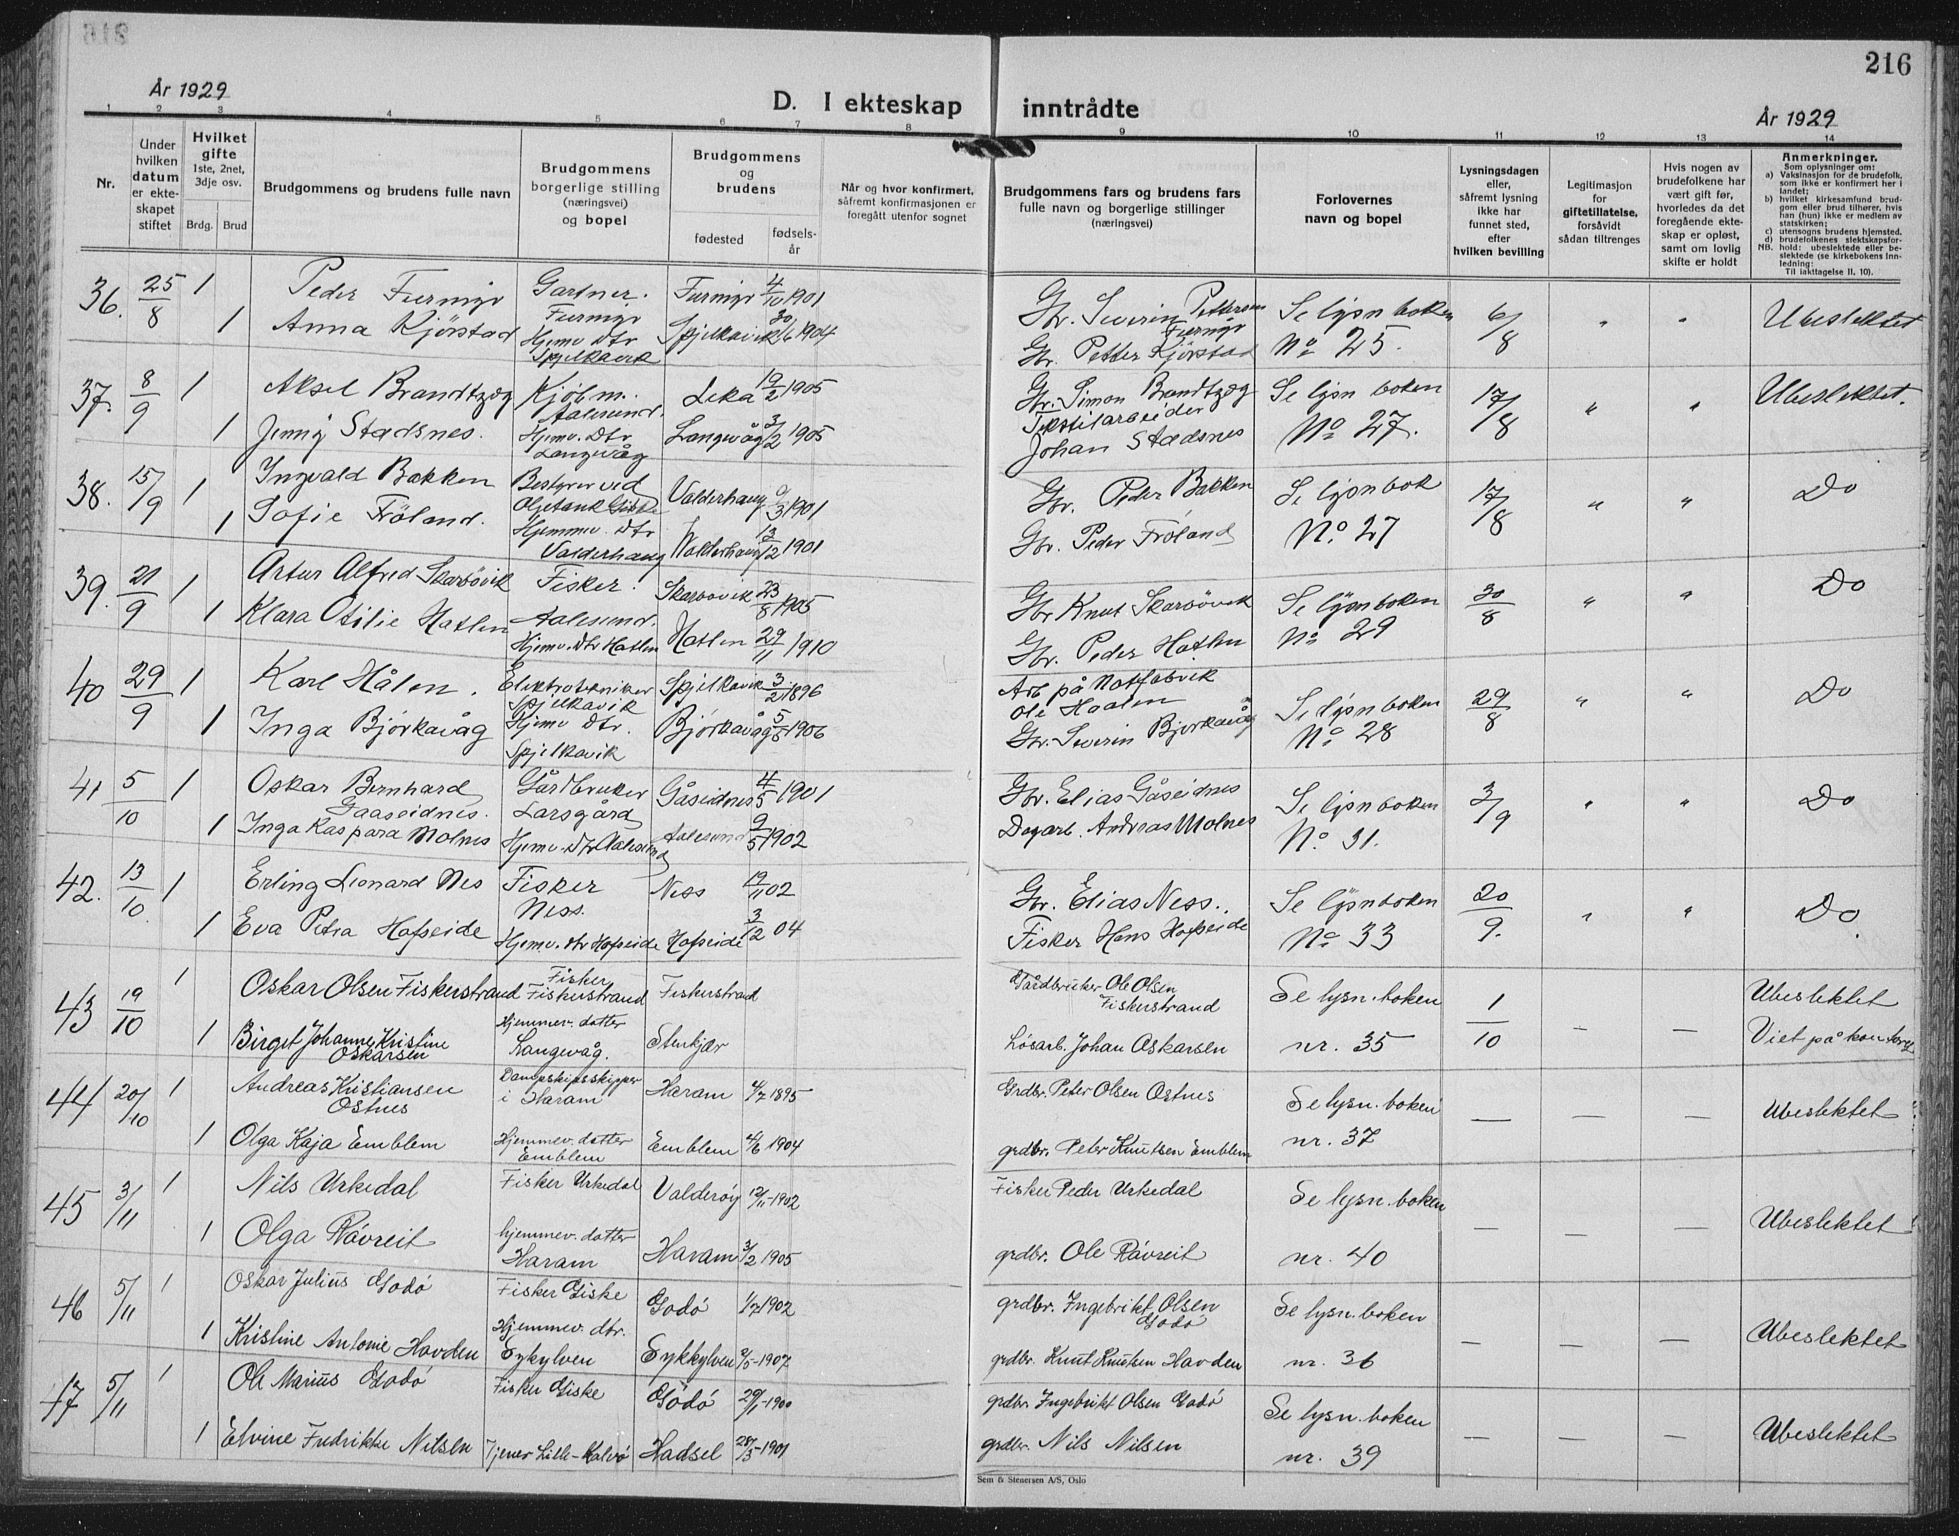 216
År 1929
D. I ekteskap inntrådte
År 1929
1 2 3 4 5 6 7 8 9 10 11 12 13 14
Nr.
Under hvilken datum er ekteskapet stiftet
Hvilket gifte 1ste, 2net, 3dje osv.
Brdg. Brud
Brudgommens og brudens fulle navn
Brudgommens borgerlige stilling (næringsvei) og bopel
Brudgommens og brudens
fødested
fødselsår
Når og hvor konfirmert, såfremt konfirmasjonen er foregått utenfor sognet
Brudgommens fars og brudens fars fulle navn og borgerlige stillinger (næringsvei)
Forlovernes navn og bopel
Lysningsdagen eller, såfremt lysning ikke har funnet sted, efter hvilken bevilling
Legitimasjon for giftetillatelse, forsåvidt sådan tiltrenges
Hvis nogen av brudefolkene har vært gift før, hvorledes da det foregående ekteskap er opløst, samt om lovlig skifte er holdt
Anmerkninger.
Som oplysninger om:
a) Vaksinasjon for de brudefolk, som ikke er konfirmert her i landet;
b) hvilket kirkesamfund brudgom eller brud tilhører, hvis han (hun) ikke er medlem av statskirken;
c) utensogns brudens hjemsted.
d) brudefolkenes slektskapsforhold: ubeslektede eller beslektede (se kirkebokens Innledning:
NB. Til iakttagelse II. 10).
36. 25/8 1 Peder Furmyr Gartner. Furmyr Furmyr 4/10 1901 Gbr. Severin Pettersen Furmyr Se lysn boken 6/8 " " Ubeslektet
1 Anna Kjørstad Hjemv Dtr Spjelkavik Spjelkavik 30/6 1904 Gbr. Petter Kjørstad No 25.
37. 8/9 1 Aksel Brandtzæg Kjøbm. Aalesund. Leka 19/2 1905 Gbr. Simon Brandtzæg Se lysn boken 17/8 " " Ubeslektet.
1 Jenny Stadsnes. Hjemv. Dtr Langevåg Langevåg 3/2 1905 Tekstilarbeider Johan Stadsnes No 27.
38. 15/9 1 Ingvald Bakken Bestyrer ved Oljetank Giske Valderhaug 9/3 1901 Gbr. Peder Bakken Se lysn bok 17/8 " " Do
1 Sofie Frøland. Hjemmev. Dtr Valderhaug Valderhaug 13/2 1901 Gbr. Peder Frøland No 27
39. 21/9 1 Artur Alfred Skarbøvik Fisker. Aalesund. Skarbøvik 23/8 1905 Gbr Knut Skarbøvik Se lysn boken 30/8 " " Do
1 Klara Otilie Hatlen Hjemv. Dtr Hatlen Hatlen 29/11 1910 Gbr. Peder Hatlen No 29
40 29/9 1 Karl Hålen. Elektrotekniker Spjelkavik Spjelkavik 3/2 1896 Arb på Notfabrik Ole Haalen Se lysn boken 29/8 " " Do
1 Inga Bjørkavåg Hjemv Dtr. Spjelkavik Bjørkavåg 5/8 1906 Gbr. Severin Bjørkavåg No 28
41 5/10 1 Oskar Bernhard Gaaseidnes. Gårdbruker Larsgård Gåseidnes 4/5 1901 Gbr. Elias Gåseidnes Se lysn boken 3/9 " " Do
1 Inga Kaspara Molnes Hjemv. Dtr Aalesund Aalesund 9/5 1902 Dagarb. Andreas Molnes No. 31.
42. 13/10. 1 Erling Leonard Nes Fisker Ness. Ness 19/11 02 Gbr. Elias Ness. Se lysn boken 20/9. " " Do.
1 Eva Petra Hofseide Hjemv. dtr Hofseide Hofseide 3/12 04 Fisker Hans Hofseide No 33
43 19/10 1 Oskar Olsen Fiskerstrand Fisker Fiskerstrand Fiskerstrand Gårdbruker Ole Olsen Fiskerstrand Se lysn. boken 1/10 — — Ubeslektet
1 Birget Johanne Kristine Oskarsen Hjemmev. datter Langevåg. Stenkjær Løsarb. Johan Oskarsen nr. 35 Viet på kontoret
44 20/10 1 Andreas Kristiansen Ostnes Dampskipsskipper i Haram Haram 4/7 1895 Grdbr. Peter Olsen Ostnes Se lysn. boken — — — Ubeslektet
1 Olga Kaja Emblem Hjemmev. datter Emblem Emblem 4/6 1904 grdbr. Peter Knutsen Emblem nr. 37
45 3/11 1 Nils Urkedal Fisker Urkedal Valderøy 12/11-1902 Fisker Peder Urkedal Se lysn. boken — — — Ubeslektet
1 Olga Røvreit hjemmev. datter Haram Haram 3/2 1905 grdbr. Ole Røvreit nr. 40
46 5/11 1 Oskar Julius Godø Fisker Giske Godø 1/7 1902 grdbr. Ingebrikt Olsen Godø Se lysn. boken — — — Ubeslektet
1 Kristine Antonie Havden Hjemmev. dtr. Sykylven Sykkylven 2/5-1907 grdbr. Knut Knutsen Havden nr. 36
47 5/11 1 Ole Marius Godø Fisker Giske Godø 29/1-1900 grdbr. Ingebrikt Olsen Godø Se lysn. boken — — — Ubeslektet
1 Elvine Fredrikke Nilsen Tjener Lille-Kalvø Hadsel 28/3-1901 grdbr. Nils Nilsen nr. 39
Sem & Stenersen A/S, Oslo